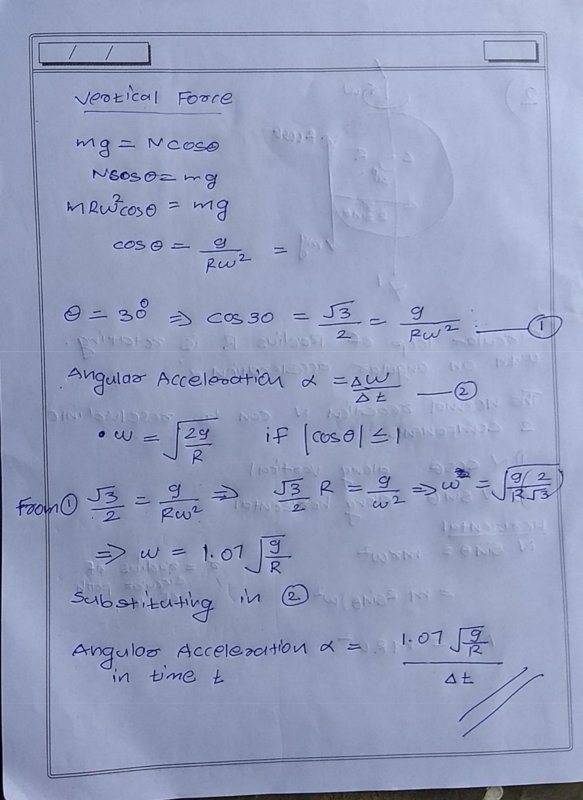 / /
Vertical Force
mg = N cosθ
Ncosθ = mg
mRω²cosθ = mg
cosθ = g/Rω² =
θ = 30° ⇒ cos30 = √3/2 = g/Rω² ①
Angular Acceleration α = Δω/Δt — ②
• ω = √(2g/R) if |cosθ| ≤ 1
From ① √3/2 = g/Rω² ⇒ √3/2 R = g/ω² ⇒ ω = √(g/R 2/√3)
⇒ ω = 1.07 √(g/R)
Substituting in ②
Angular Acceleration α = 1.07 √(g/R) / Δt
in time t